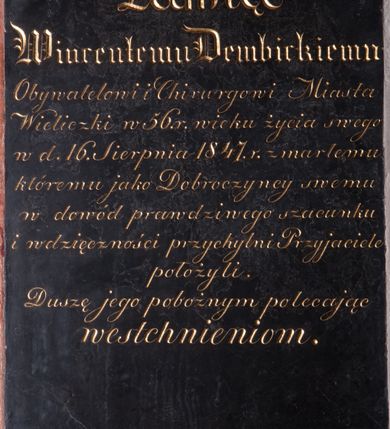 Wincentemu Dembickiemu
Obywatelowi i Chirurgowi Miasta
Wieliczki w 56.r. wieku życia swego
w d. 16. Sierpnia 1847. r. zmarłemu
któremu jako Dobroczyncy swemu
w dowód prawdziwego szacunku
i wdzięczności przychylni Przyjaciele
położyli.
Duszę jego pobożnym polecając
westchnieniom.